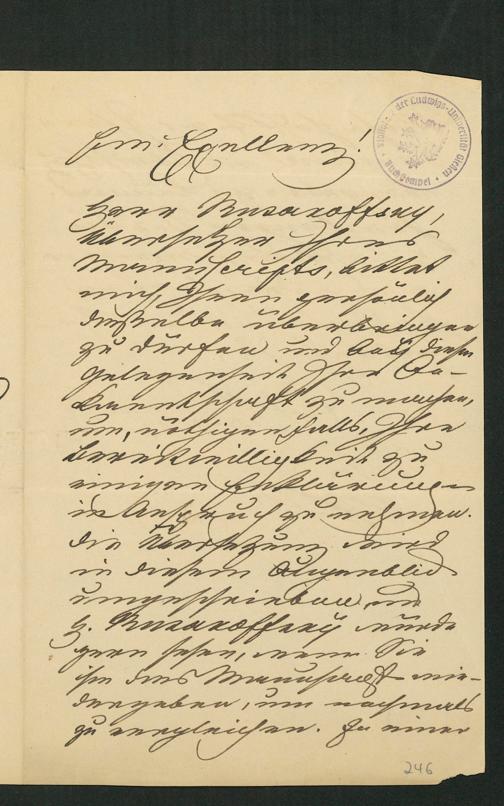 Ew: Exellenz!
Herr Nusaroffsky,
Übersetzer Ihres
Manuscripts, bittet
mich Ihnen persönlich
dasselbe überbringen
zu dürfen und bei dieser
Gelegenheit Ihre Be-
kanntschaft zu machen,
um, nöthigenfalls, Ihre
Bereitwilligkeit zu
einigen Erklärungen
in Anspruch zu nehmen.
Die Übersetzung wird
in diesem Augenblick
umgeschrieben und
H. Nusaroffsky würde
gern sehen, wenn Sie
ihm das Manuscript wie-
dergeben, um nochmals
zu vergleichen. In einer
der Ludwigs-Universität Gießen
246